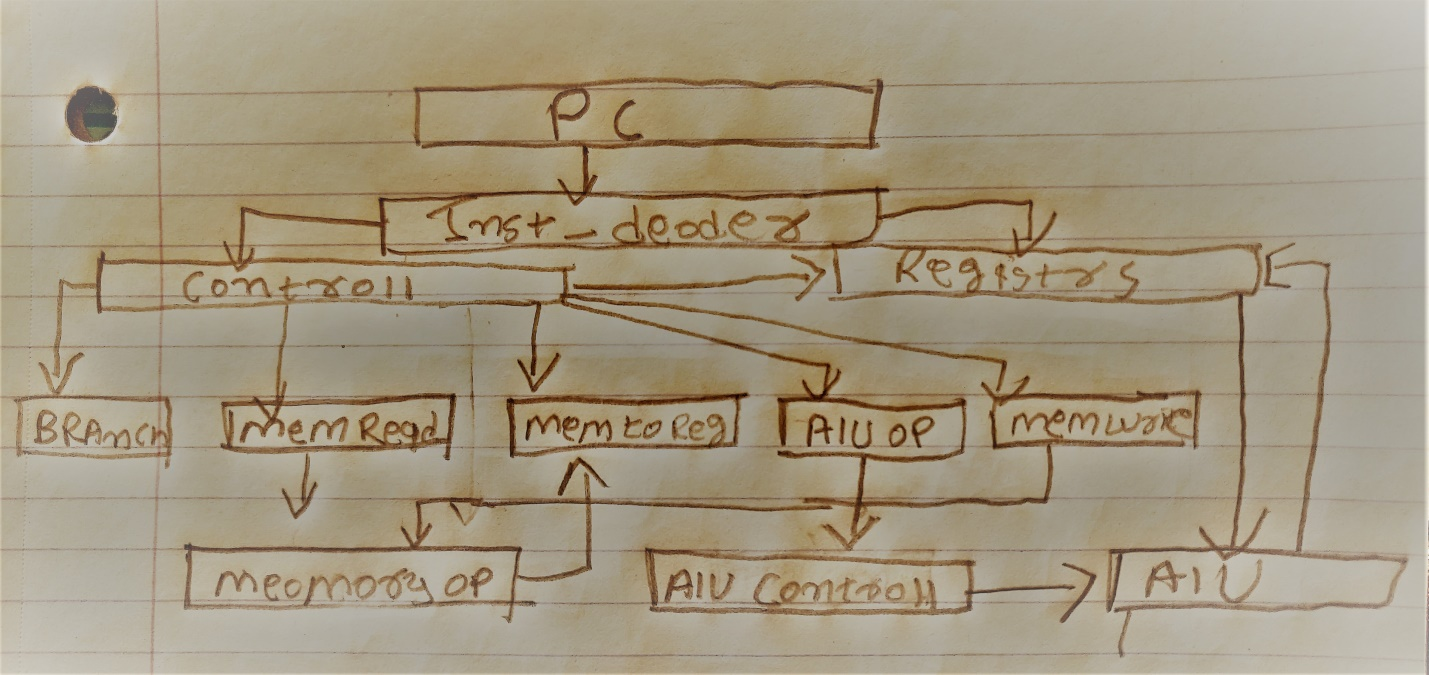 PC
Inst_deoder
Controll
Registrs
BRAnch
memRead
memtoReg
AIU OP
memwrite
meomory OP
AIU Controll
AIU